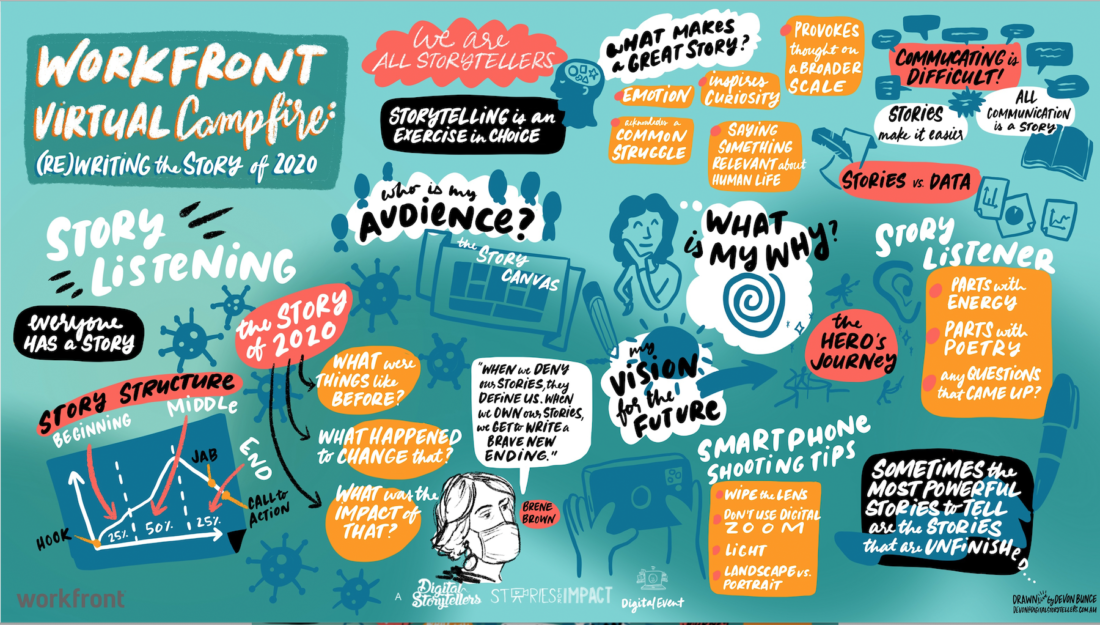 WORKFRONT
VIRTUAL Campfire:
(RE)WRITING the STORY of 2020
We are
ALL STORYTELLERS
STORYTELLING is an
EXERCISE in CHOICE
WHAT MAKES
a GREAT STORY?
EMOTION
inspires
CURIOSITY
PROVOKES
thought on
a BROADER
SCALE
acknowledges a
COMMON
STRUGGLE
SAYING
SOMETHING
RELEVANT about
HUMAN LIFE
COMMUCATING is
DIFFICULT!
STORIES
make it easier
ALL
COMMUNICATION
is a STORY
STORIES vs. DATA
who is my
AUDIENCE?
the STORY
CANVAS
WHAT
is MY WHY?
STORY
LISTENER
PARTS with
ENERGY
PARTS with
POETRY
any QUESTIONS
that CAME UP?
the
HERO'S
JOURNEY
STORY
LISTENING
everyone
HAS a STORY
the STORY
of 2020
WHAT were
THINGS like
BEFORE?
WHAT HAPPENED
to CHANGE that?
WHAT was the
IMPACT of
THAT?
STORY STRUCTURE
BEGINNING
MIDDLE
END
JAB
CALL to
ACTION
HOOK
25%
50%
25%
"WHEN we DENY
our STORIES, they
DEFINE US. WHEN
we OWN our STORIES,
we GET to WRITE a
BRAVE NEW
ENDING."
BRENE
BROWN
my
VISION
for the
FUTURE
SMARTPHONE
SHOOTING TIPS
WIPE the LENS
DON'T USE DIGITAL
ZOOM
LIGHT
LANDSCAPE vs.
PORTRAIT
SOMETIMES the
MOST POWERFUL
STORIES to TELL
are the STORIES
that are UNFINISHED...
workfront
A
Digital
Storytellers
STORIES FOR IMPACT
Digital Event
DRAWN live by DEVON BUNCE
DEVON@DIGITALSTORYTELLERS.COM.AU